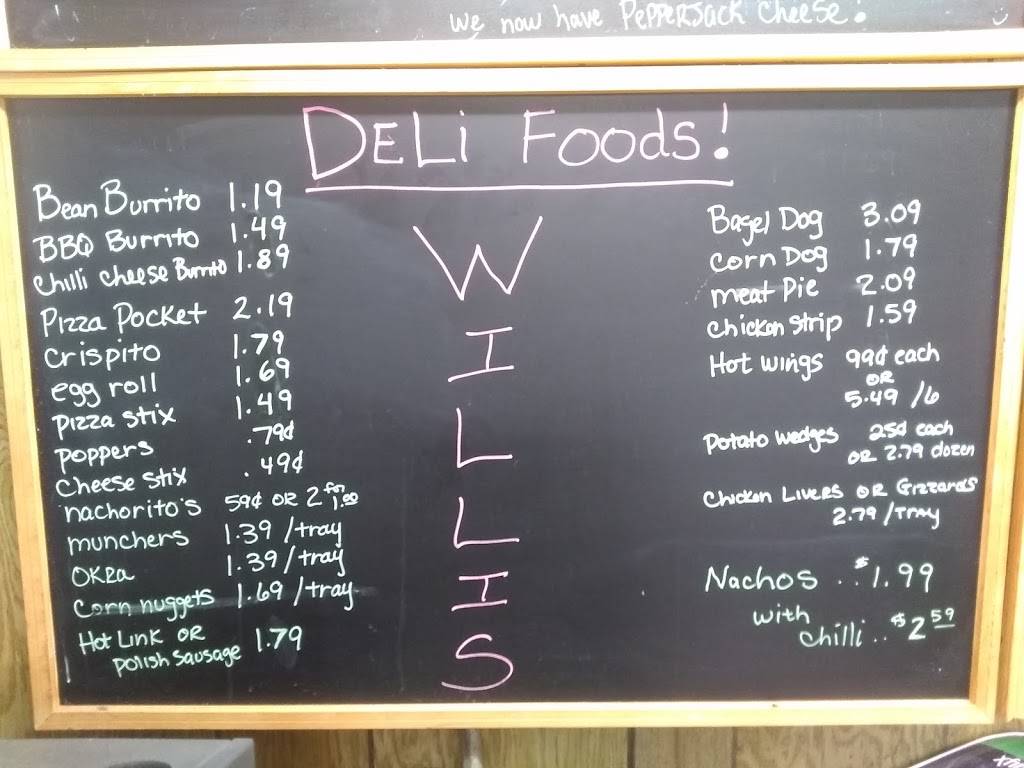 we now have PepperJack cheese!
DELi Foods!
Bean Burrito 1.19
BBQ Burrito 1.49
Chilli cheese Burrito 1.89
Pizza Pocket 2.19
Crispito 1.79
egg roll 1.69
Pizza stix 1.49
Poppers .79¢
Cheese stix .49¢
nachorito's 59¢ OR 2 for 1.00
munchers 1.39 /tray
OKRa 1.39 /tray
Corn nuggets 1.69 /tray
Hot Link OR
Polish Sausage 1.79
W
I
L
L
I
S
Bagel Dog 3.09
Corn Dog 1.79
meat Pie 2.09
Chicken Strip 1.59
Hot wings 99¢ each
OR
5.49 /6
Potato wedges 25¢ each
OR 2.79 dozen
Chicken Livers OR Gizzards
2.79 /Tray
Nachos ..$1.99
with
chilli..$2 59